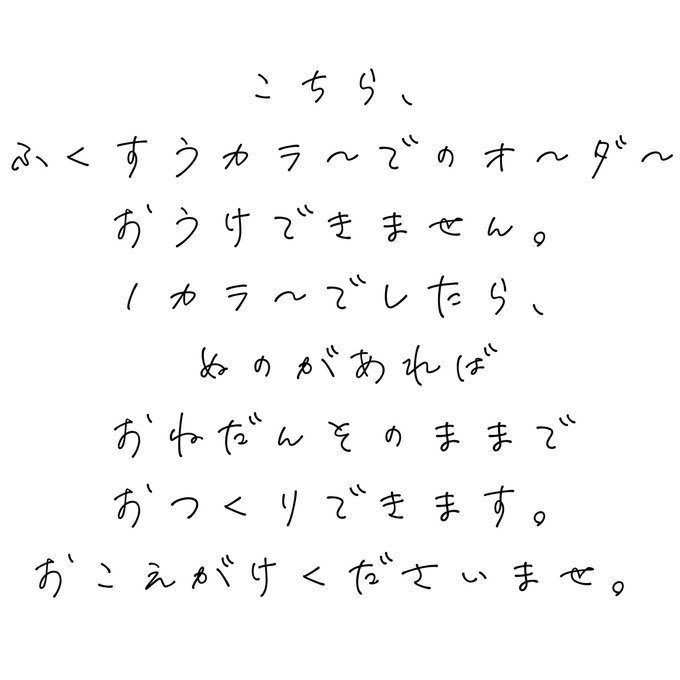 こちら、
ふくすうカラ〜でのオ〜ダ〜
おうけできません。
1カラ〜でしたら、
ぬのがあれば
おねだんそのままで
おつくりできます。
おこえがけくださいませ。